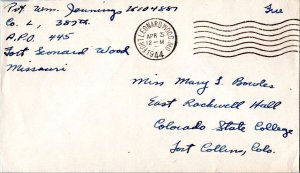 Pvt. Wm. Jennings
Co. L, 387th.
A.P.O. 445
Fort Leonard Wood
Missouri
Free
APR 5
12-M
1944
Miss Mary S. Bowles
East Rockwell Hall
Colorado State College
Fort Collins, Colo.